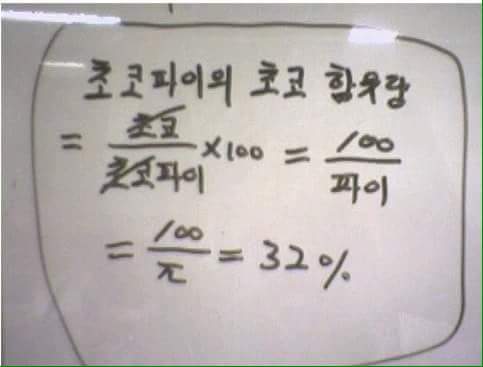 초코파이의 초코 함유량
= 초코/초코파이 × 100 = 100/파이
= 100/π = 32%